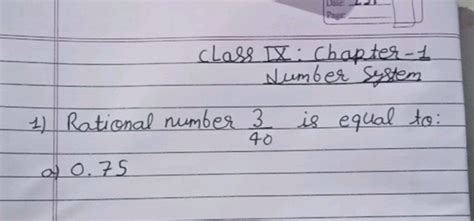 Date:
Page:
Class IX : Chapter-1
Number System
1) Rational number 3/40 is equal to:
a) 0.75